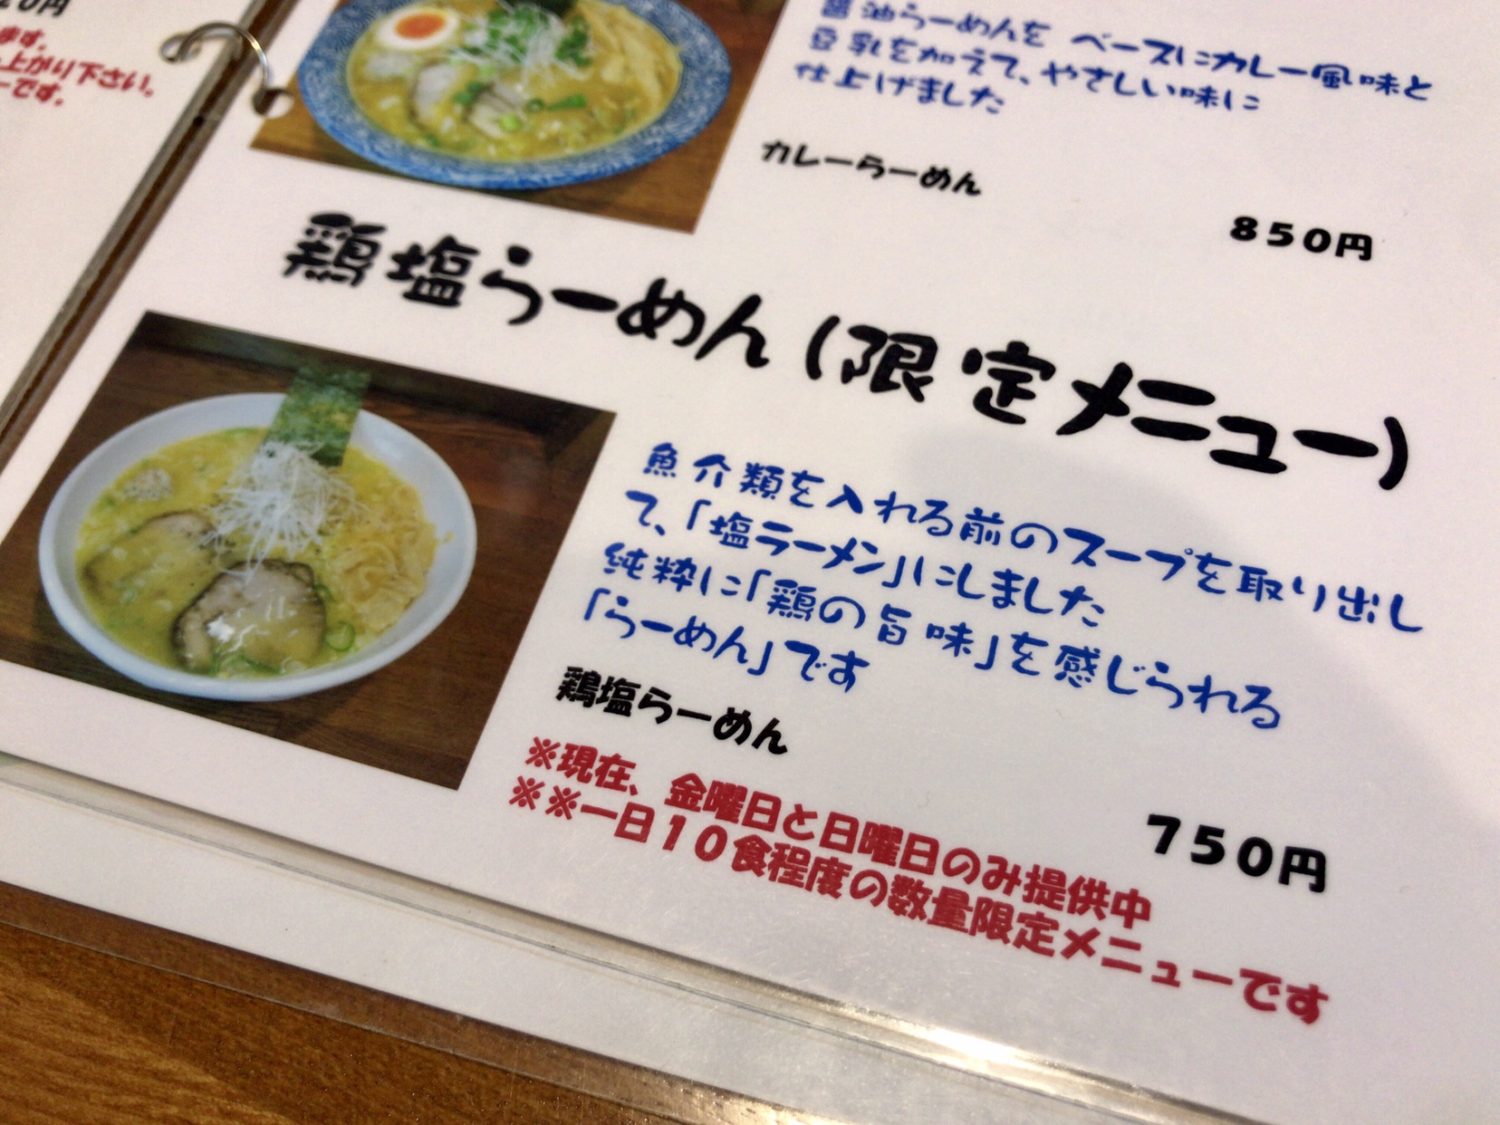 20円
ます。
上がり下さい。
ーです。
醤油らーめんを ベースにカレー風味と
豆乳を加えて、やさしい味に
仕上げました
カレーらーめん
850円
鶏塩らーめん(限定メニュー)
魚介類を入れる前のスープを取り出し
て、「塩ラーメン」にしました
純粋に「鶏の旨味」を感じられる
「らーめん」です
鶏塩らーめん
750円
※現在、金曜日と日曜日のみ提供中
※※一日10食程度の数量限定メニューです